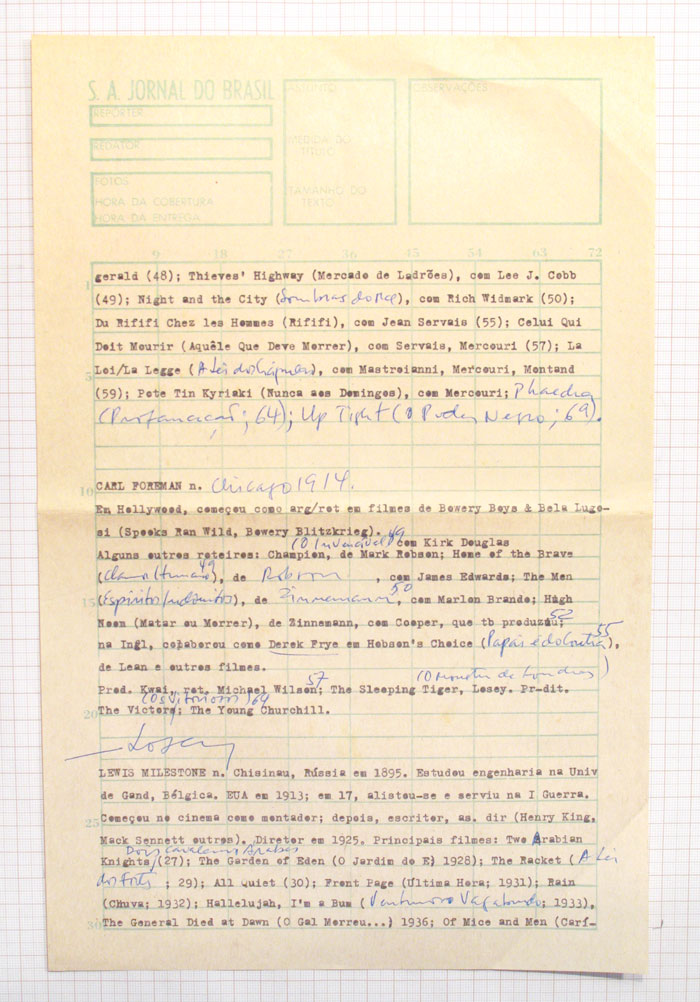 S. A. JORNAL DO BRASIL
REPÓRTER
REDATOR
FOTOS
HORA DA COBERTURA
HORA DA ENTREGA
ASSUNTO
MEDIDA DO
TÍTULO
TAMANHO DO
TEXTO
OBSERVAÇÕES
9 18 27 36 45 54 63 72
1
gerald (48); Thieves' Highway (Mercado de Ladrões), com Lee J. Cobb
(49); Night and the City (Sombras do Mal), com Rich Widmark (50);
Du Rififi Chez les Hommes (Rififi), com Jean Servais (55); Celui Qui
Doit Mourir (Aquêle Que Deve Morrer), com Servais, Mercouri (57); La
5
Loi/La Legge (A Lei dos Crápulas), com Mastroianni, Mercouri, Montand
(59); Pote Tin Kyriaki (Nunca aos Domingos), com Mercouri; Phaedra
(Profanação; 64); Up Tight (O Poder Negro; 69).
10
CARL FOREMAN n. Chicago 1914.
Em Hollywood, começou como arg/rot em filmes de Bowery Boys & Bela Lugo-
si (Spooks Ran Wild, Bowery Blitzkrieg).
(O Invencível) 49 com Kirk Douglas
Alguns outros roteiros: Champion, de Mark Robson; Home of the Brave
49
(Clamor Humano), de Robson , com James Edwards; The Men
15
50
(Espíritos Indômitos), de Zinnemann, com Marlon Brando; High
52
Noom (Matar ou Morrer), de Zinnemann, com Cooper, que tb produziu;
55
na Ingl, colaborou como Derek Frye em Hobson's Choice (Papai é do Contra),
de Lean e outros filmes.
57 (O Monstro de Londres)
Prod. Kwai, rot. Michael Wilson; The Sleeping Tiger, Losey. Pr-dit.
(Os Vitoriosos) 64
20
The Victors; The Young Churchill.
Losey
LEWIS MILESTONE n. Chisinau, Rússia em 1895. Estudou engenharia na Univ
de Gand, Bélgica. EUA em 1913; em 17, alistou-se e serviu na I Guerra.
25
Começou no cinema como montador; depois, escritor, as. dir (Henry King,
Mack Sennett outros). Diretor em 1925. Principais filmes: Two Arabian
Dois Cavaleiros Árabes
Knights (27); The Garden of Eden (O Jardim do E) 1928); The Racket (A Lei
dos Fortes ; 29); All Quiet (30); Front Page (Última Hora; 1931); Rain
(Chuva; 1932); Hallelujah, I'm a Bum (Venturoso Vagabundo; 1933),
30
The General Died at Dawn (O Gal Morreu...) 1936; Of Mice and Men (Carí-